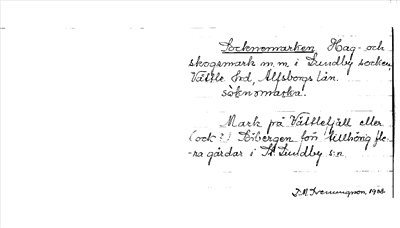 Socknemarken Hag- och
skogsmark m.m i Lundby socken,
Vättle hrd, Älfsborgs län.
såknəmarka.
Mark på Vättlefjäll eller
(ock?) bergen för tillhörig fle-
ra gårdar i St. Lundby s:n.
1908